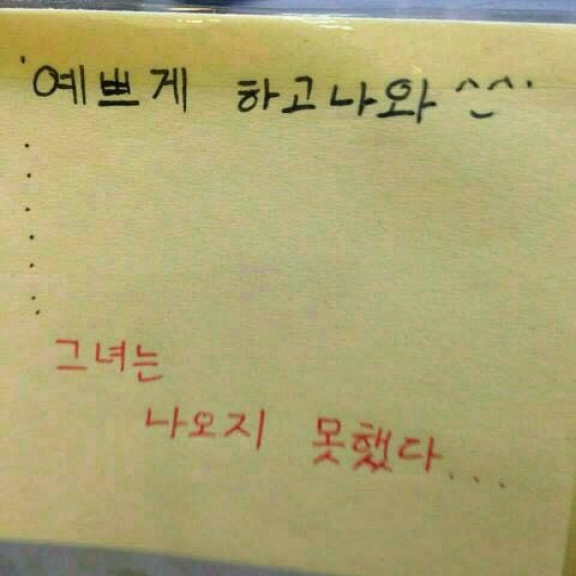 '예쁘게 하고나와 ^_^'
.
.
.
.
.
.
그녀는
나오지 못했다...